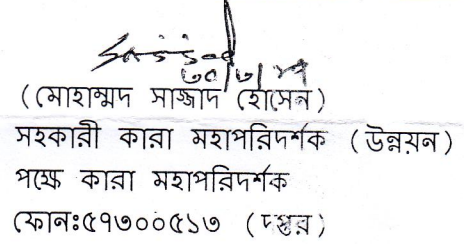 (মোহাম্মদ সাজ্জাদ হোসেন)
সহকারী কারা মহাপরিদর্শক (উন্নয়ন)
পক্ষে কারা মহাপরিদর্শক
ফোনঃ৫৭৩০০৫১৩ (দপ্তর)